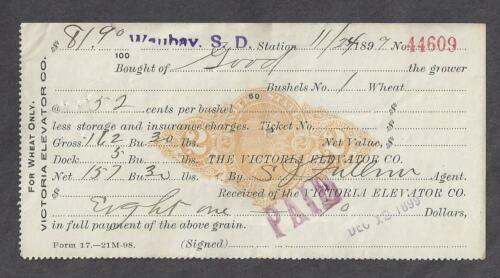 $ 81.90 Waubay, S. D. Station 11/24 1899. No. 44609
100
Bought of Good the grower
Bushels No. 1 Wheat
@ 52 cents per bushel 60
less storage and insurance charges. Ticket No.
Gross 162 Bu 30 lbs. Net Value,
Dock 5 Bu lbs. THE VICTORIA ELEVATOR CO.
Net 157 Bu 30 lbs. By Agent.
Received of the VICTORIA ELEVATOR CO.
Eight one Dollars,
in full payment of the above grain.
Form 17.—21M-98. (Signed)
PAID
DEC 1899
FOR WHEAT ONLY.
VICTORIA ELEVATOR CO.